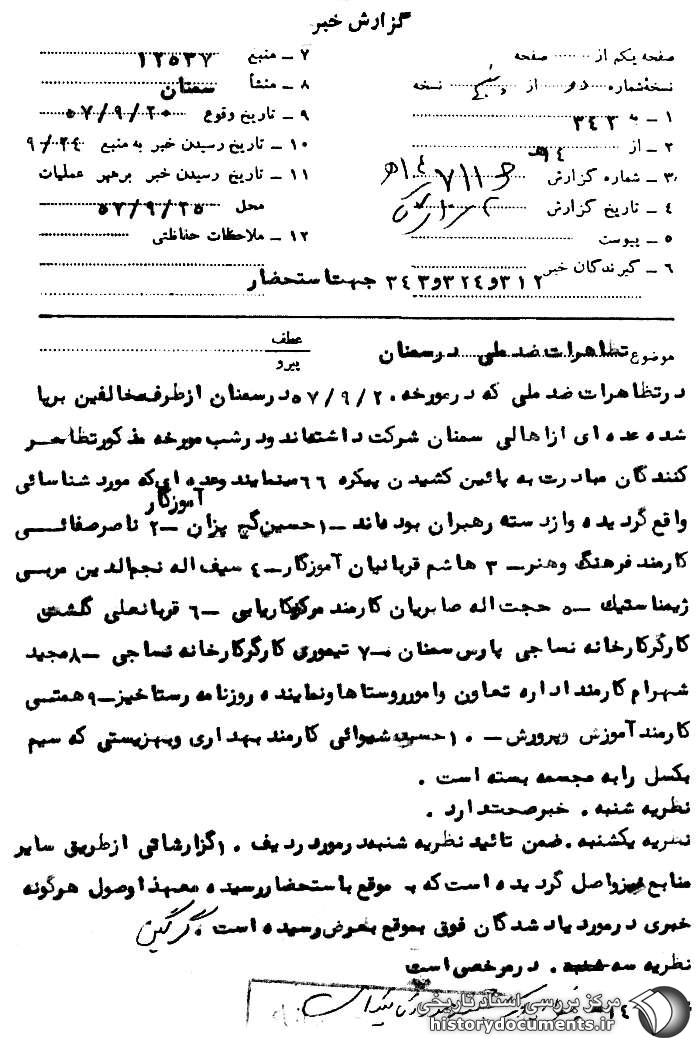 گزارش خبر
صفحه یکم از ........ صفحه
نسخه شماره دو از پنج نسخه
۱ ــ به ۳۴۲
۲ ــ از ۱۴هـ
۳ ــ شماره گزارش ۷۱۱۶ /۱۴هـ
۴ ــ تاریخ گزارش
۵ ــ پیوست
۶ ــ گیرندگان خبر ۳۱۲و۳۲۴و۳۴۳ جهت استحضار
۷ ــ منبع ۱۲۵۳۷
۸ ــ منشأ سمنان
۹ ــ تاریخ وقوع ۵۷/۹/۲۰
۱۰ ــ تاریخ رسیدن خبر به منبع ۹/۲۴
۱۱ ــ تاریخ رسیدن خبر برهبر عملیات
محل ۵۷/۹/۲۵
۱۲ ــ ملاحظات حفاظتی
موضوع تظاهرات ضد ملی در سمنان
عطف
پیرو
در تظاهرات ضد ملی که در مورخه ۵۷/۹/۲۰ در سمنان از طرف مخالفین برپا
شده عده ای از اهالی سمنان شرکت داشته‌اند و در شب مورخه مذکور تظاهر
کنندگان مبادرت به پائین کشیدن پیکره ۶۶ مینمایند وعده ای که مورد شناسائی
آموزگار
واقع گردیده و از دسته رهبران بوده‌اند ــ ۱ حسین گچ پزان ــ ۲ ناصر صفائی
کارمند فرهنگ وهنر ــ ۳ هاشم قربانیان آموزگار ــ ۴ سیف اله نجم‌الدین مربی
ژیمناستیک ــ ۵ حجت اله صابریان کارمند مرکز کاریابی ــ ۶ قربانعلی گلشن
کارگر کارخانه نساجی پارس سمنان ــ ۷ تیموری کارگر کارخانه نساجی ــ ۸ مجید
شهرام کارمند اداره تعاون وامور روستاها ونماینده روزنامه رستاخیز ــ ۹ همتی
کارمند آموزش وپرورش ــ ۱۰ حسین شیوائی کارمند بهداری وبهزیستی که سیم
بکسل را به مجسمه بسته است .
نظریه شنبه . خبر صحت دارد .
نظریه یکشنبه . ضمن تائید نظریه شنبه در مورد ردیف ۱۰ گزارشاتی از طریق سایر
منابع نیز واصل گردیده است که به موقع باستحضار رسیده معهذا وصول هرگونه
خبری در مورد یاد شدگان فوق بموقع بعرض رسیده است . گرگین
نظریه سه شنبه . در مرخصی است
مرکز بررسی اسناد تاریخی
historydocuments.ir